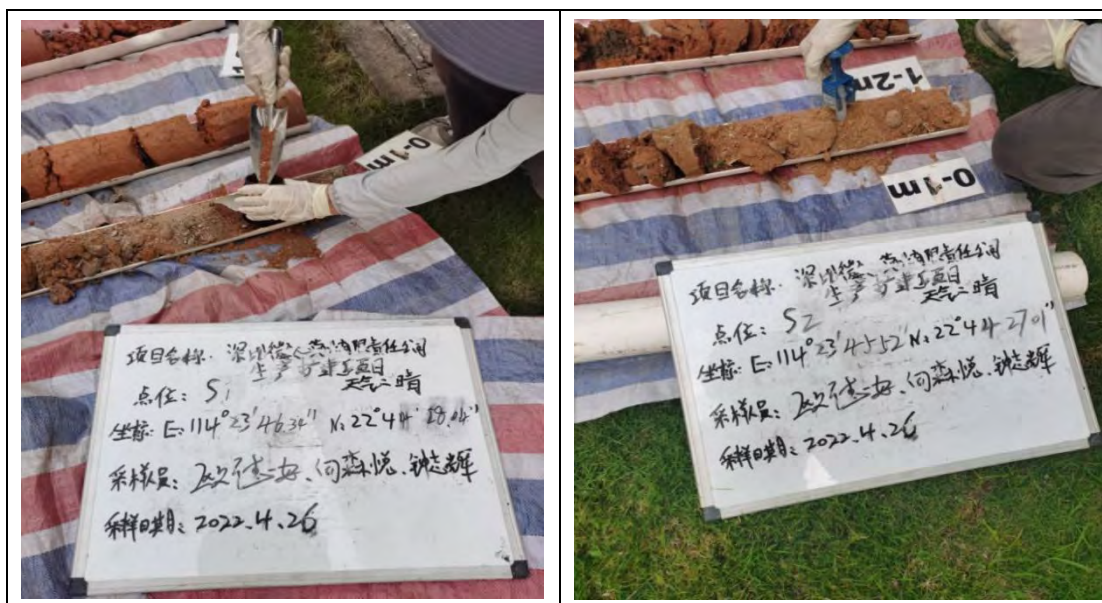 0-1m
项目名称: 深圳 有限责任公司
生产扩建项目
天气: 晴
点位: S1
坐标: E: 114°23'46.34" N: 22°44'28.04"
采样人员: 何森悦、钟志辉
采样日期: 2022.4.26
1-2m
0-1m
项目名称: 深圳 有限责任公司
生产扩建项目
天气: 晴
点位: S2
坐标: E: 114°23'45.52" N: 22°44'27.01"
采样人员: 何森悦、钟志辉
采样日期: 2022.4.26